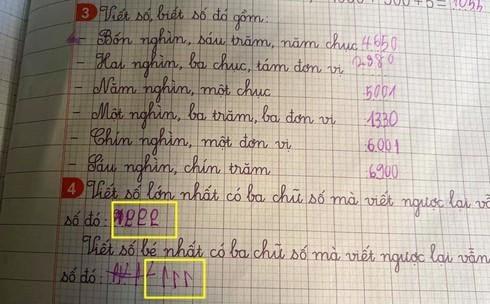 1000 + 300 + 5 = 1055
3 Viết số, biết số đó gồm:
- Bốn nghìn, sáu trăm, năm chục 4650
- Hai nghìn, ba chục, tám đơn vị 2980
- Năm nghìn, một chục 5001
- Một nghìn, ba trăm, ba đơn vị 1330
- Chín nghìn, một đơn vị 6001
- Sáu nghìn, chín trăm 6900
4 Viết số lớn nhất có ba chữ số mà viết ngược lại vẫ
số đó:
Viết số bé nhất có ba chữ số mà viết ngược lại vẫn
số đó: 111